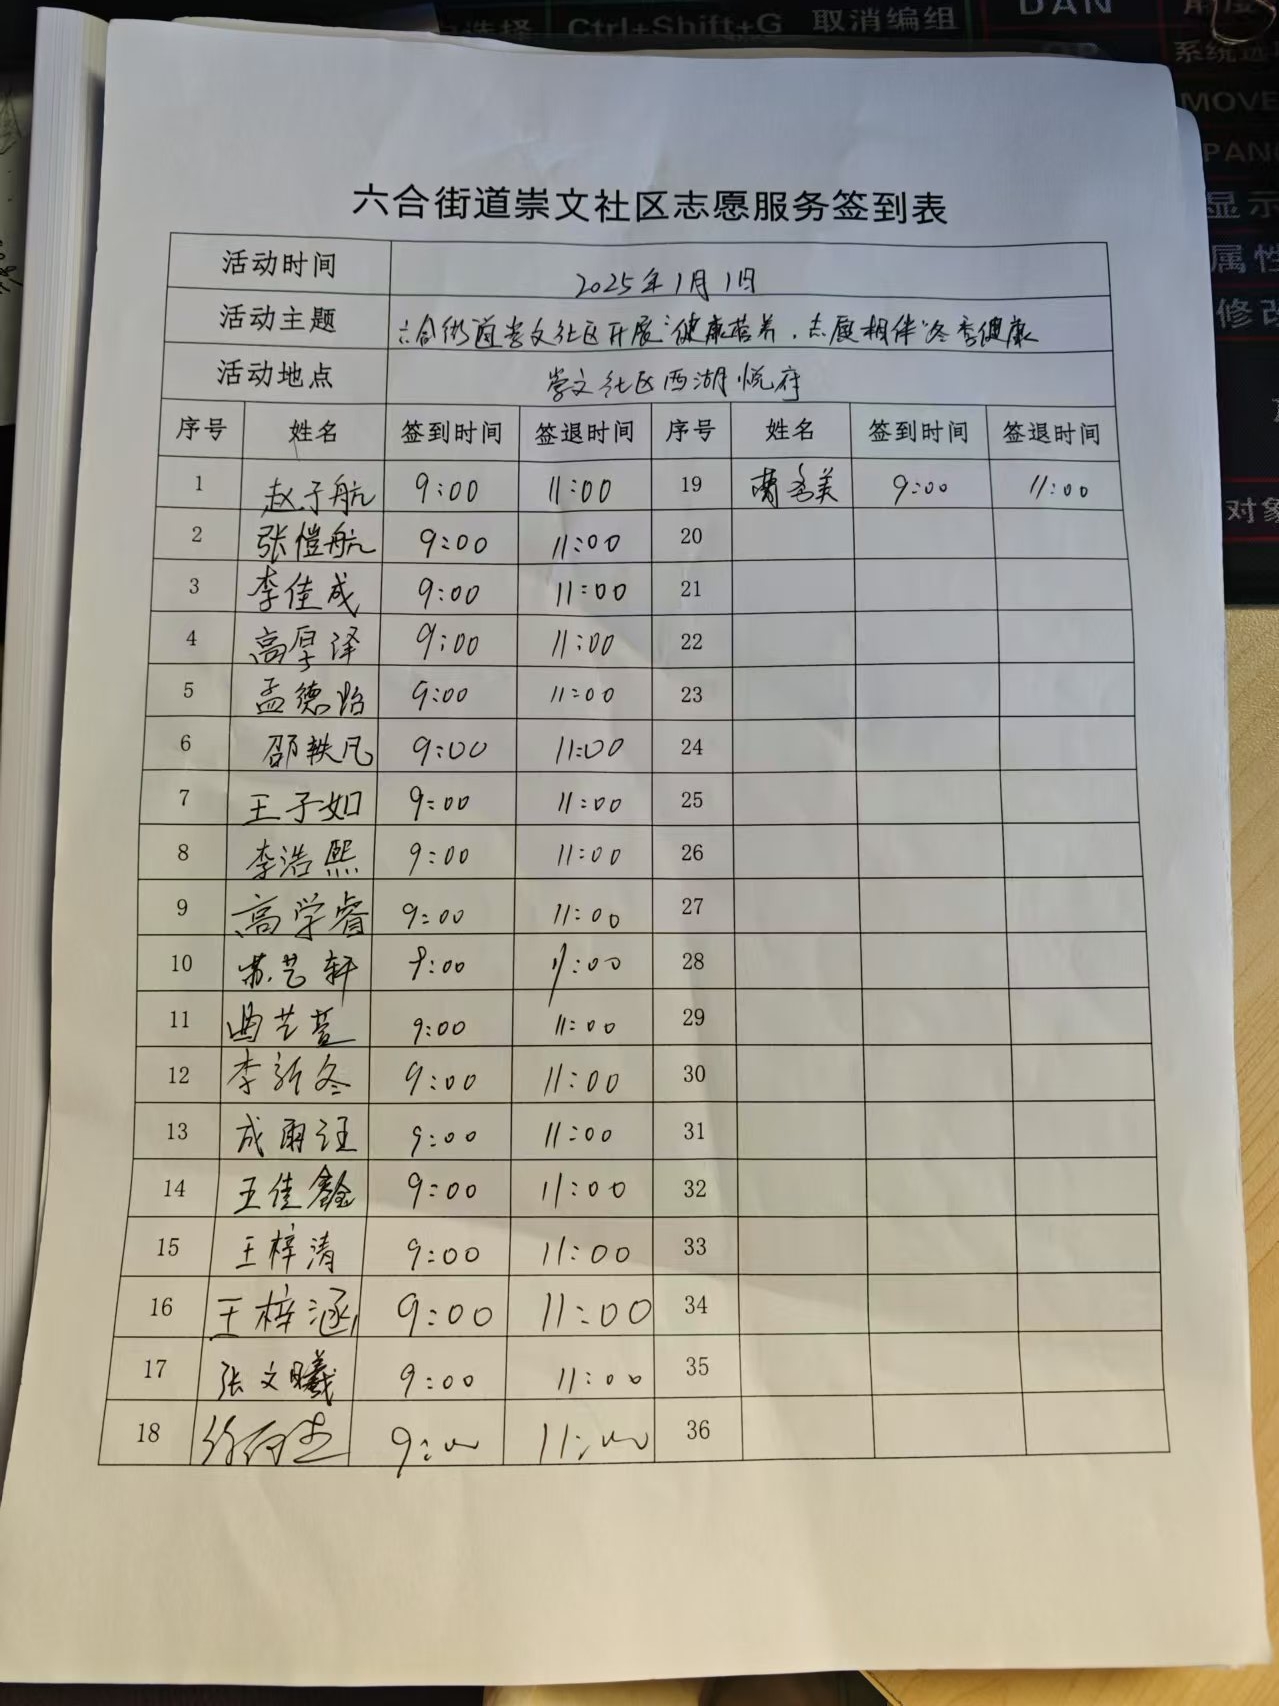 中选择 Ctrl+Shift+G 取消编组
DAN
系统选
MOVE
PAN
显示
属性
修改
对象
六合街道崇文社区志愿服务签到表
活动时间 2025年1月1日
活动主题 六合街道崇文社区开展"健康营养,志愿相伴"冬季健康
活动地点 崇文社区西湖悦府
序号 姓名 签到时间 签退时间 序号 姓名 签到时间 签退时间
1 赵子航 9:00 11:00 19 9:00 11:00
2 张恺航 9:00 11:00 20
3 李佳成 9:00 11:00 21
4 高厚泽 9:00 11:00 22
5 孟德怡 9:00 11:00 23
6 邵轶凡 9:00 11:00 24
7 王子如 9:00 11:00 25
8 李浩熙 9:00 11:00 26
9 高学睿 9:00 11:00 27
10 苏艺轩 9:00 11:00 28
11 曲艺萱 9:00 11:00 29
12 李新冬 9:00 11:00 30
13 成雨 9:00 11:00 31
14 王佳鑫 9:00 11:00 32
15 王梓清 9:00 11:00 33
16 王梓涵 9:00 11:00 34
17 张文曦 9:00 11:00 35
18 9:00 11:00 36